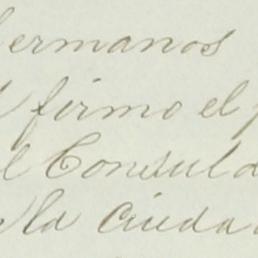 hermanos
firmo el
el Consul d
la Ciuda